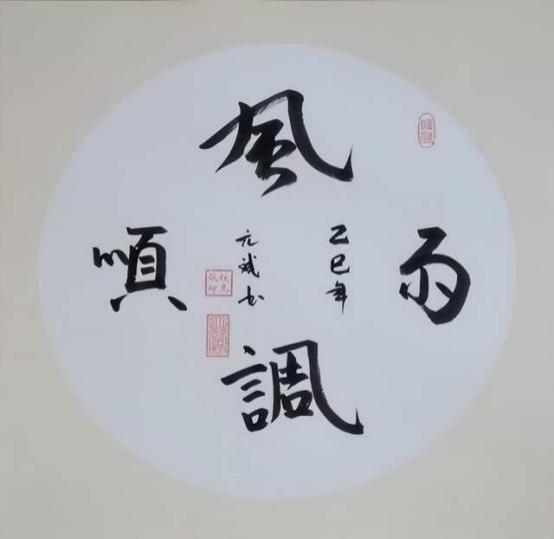 風
調
雨
順
乙巳年
元斌书